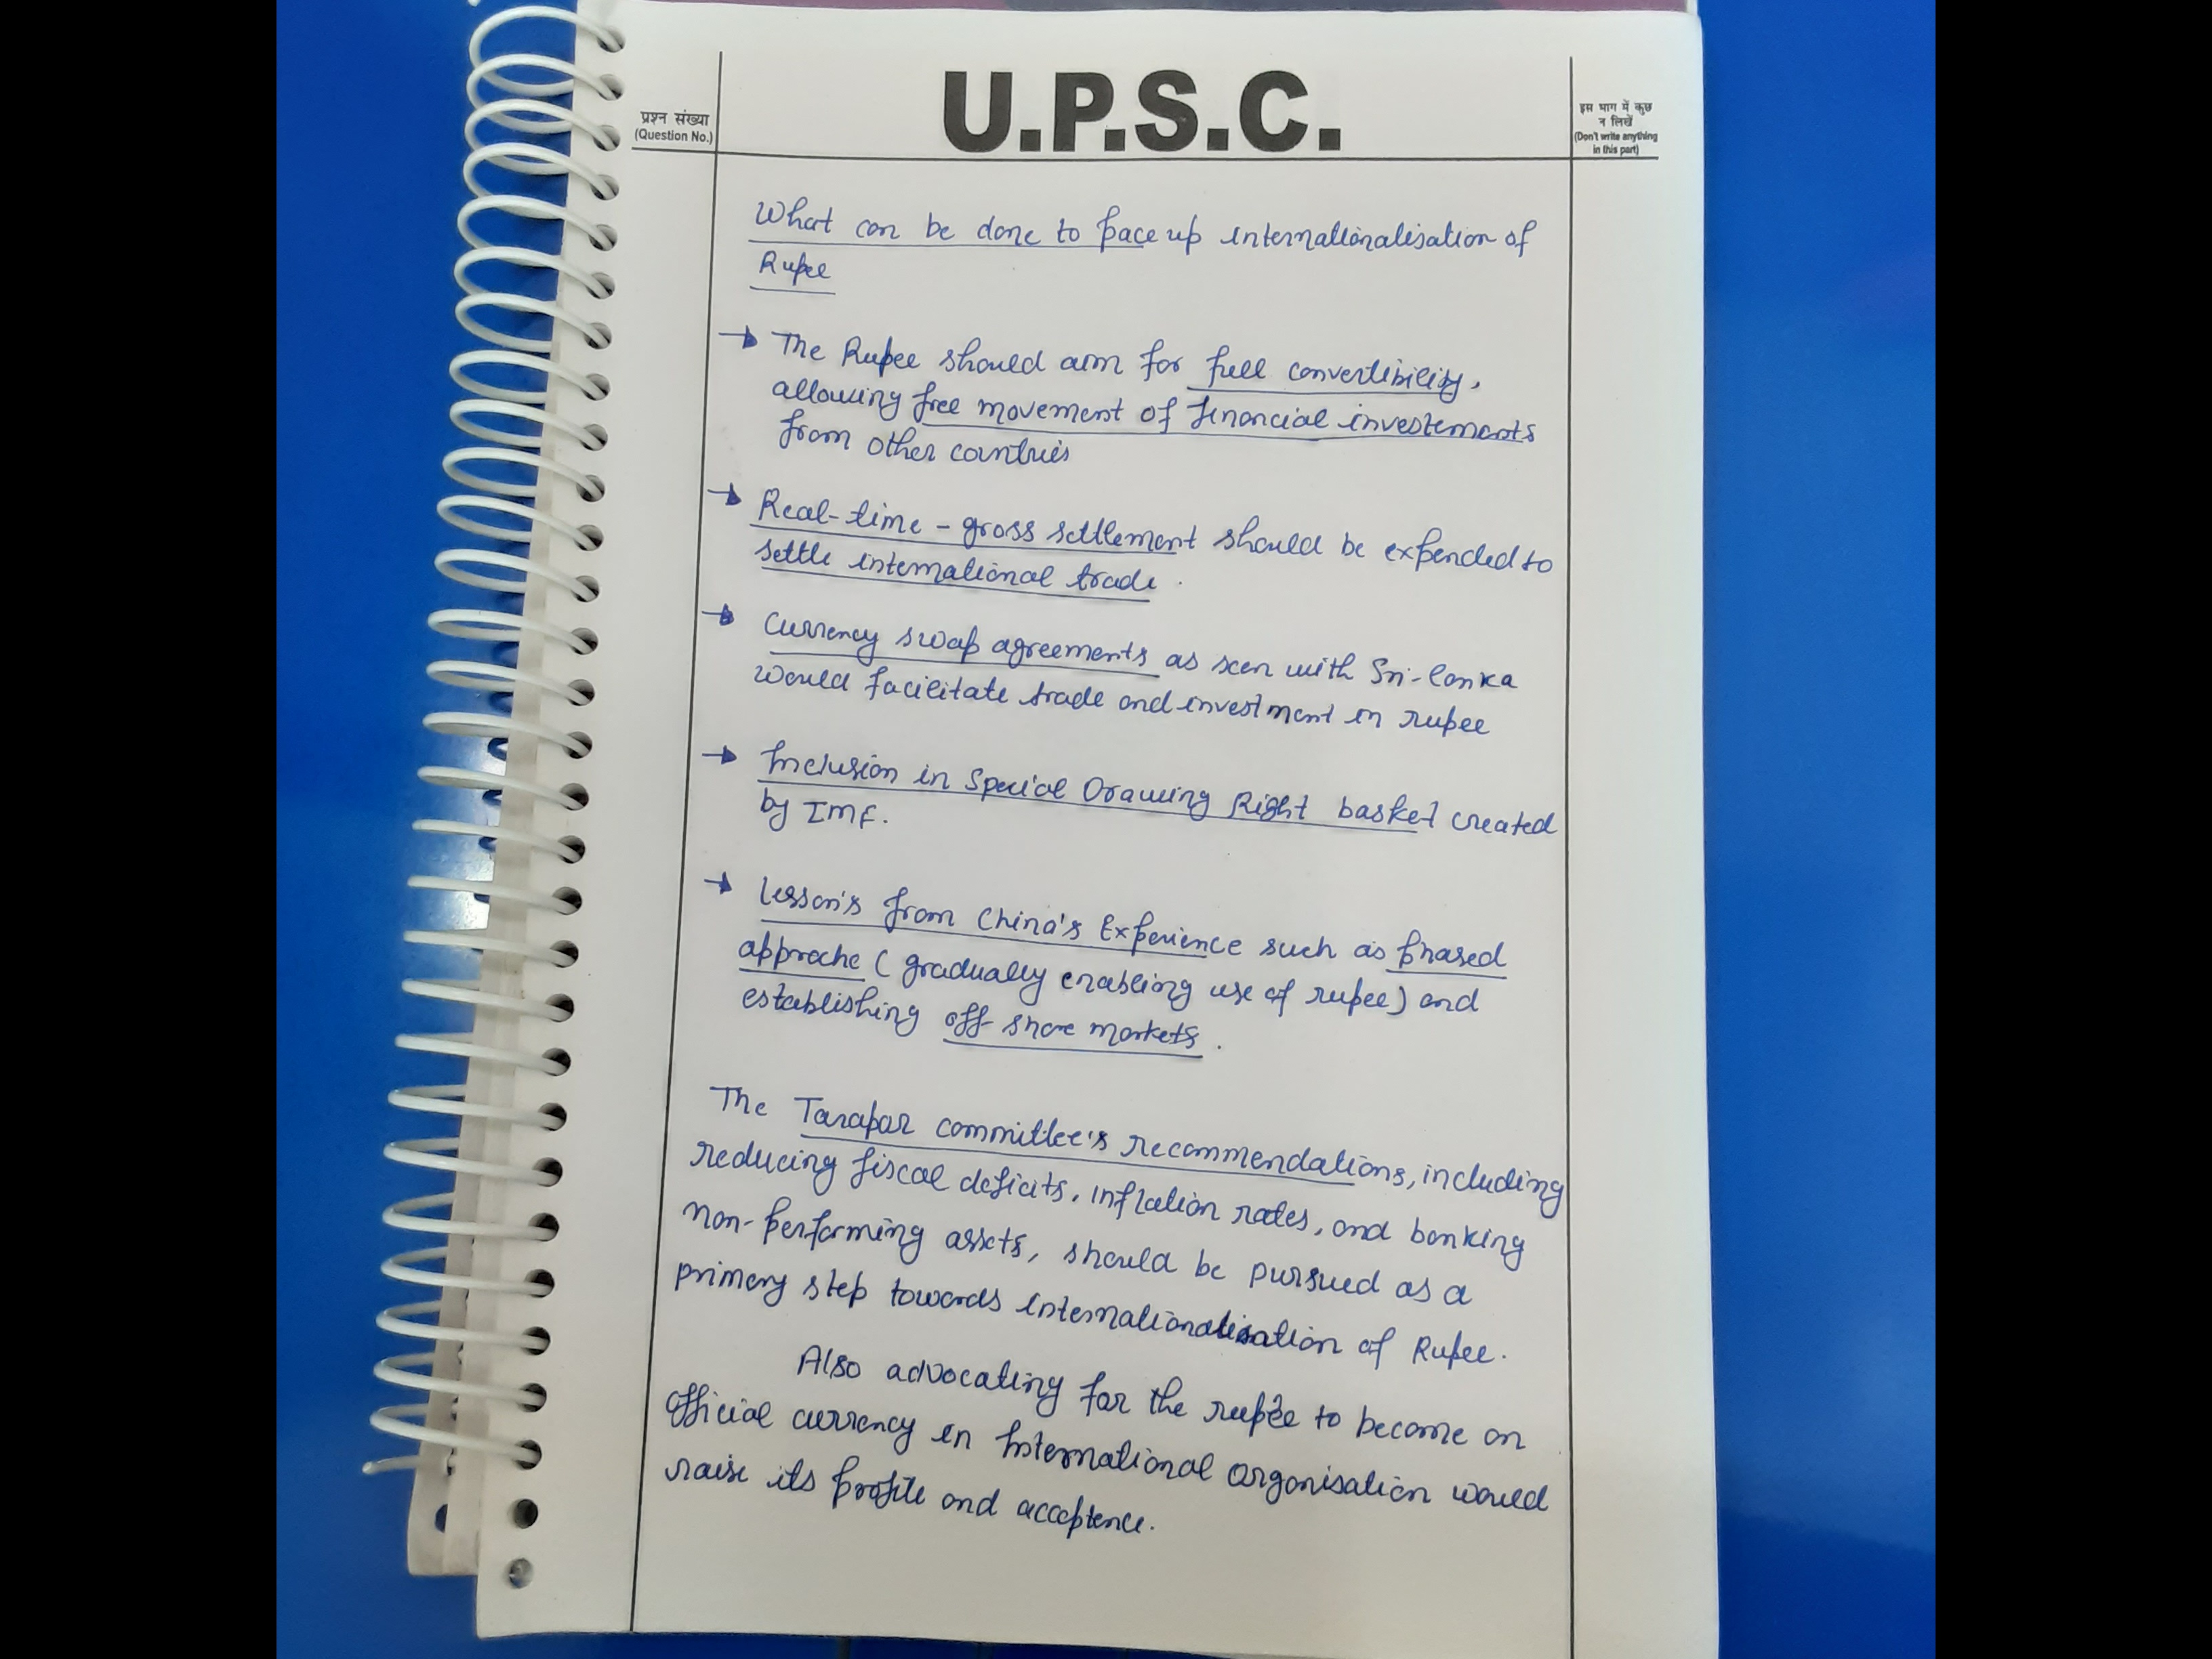 U.P.S.C.
प्रश्न संख्या
(Question No.)
इस भाग में कुछ
न लिखें
(Don't write anything
in this part)
What can be done to pace up internationalisation of
Rupee
→ The Rupee should aim for full convertibility,
allowing free movement of financial investements
from other countries
→ Real-time-gross settlement should be expended to
settle international trade.
→ Currency swap agreements as seen with Sri-lanka
would facilitate trade and investment in rupee
→ Inclusion in Special Drawing Right basket created
by IMF.
→ Lesson's from China's Experience such as phased
approche (gradually enabling use of rupee) and
establishing off-shore markets.
The Tarapar committee's recommendations, including
reducing fiscal deficits, inflation rates, and banking
non-performing assets, should be pursued as a
primary step towards internationalisation of Rupee.
Also advocating for the rupee to become an
official currency in International organisation would
raise its profile and acceptence.